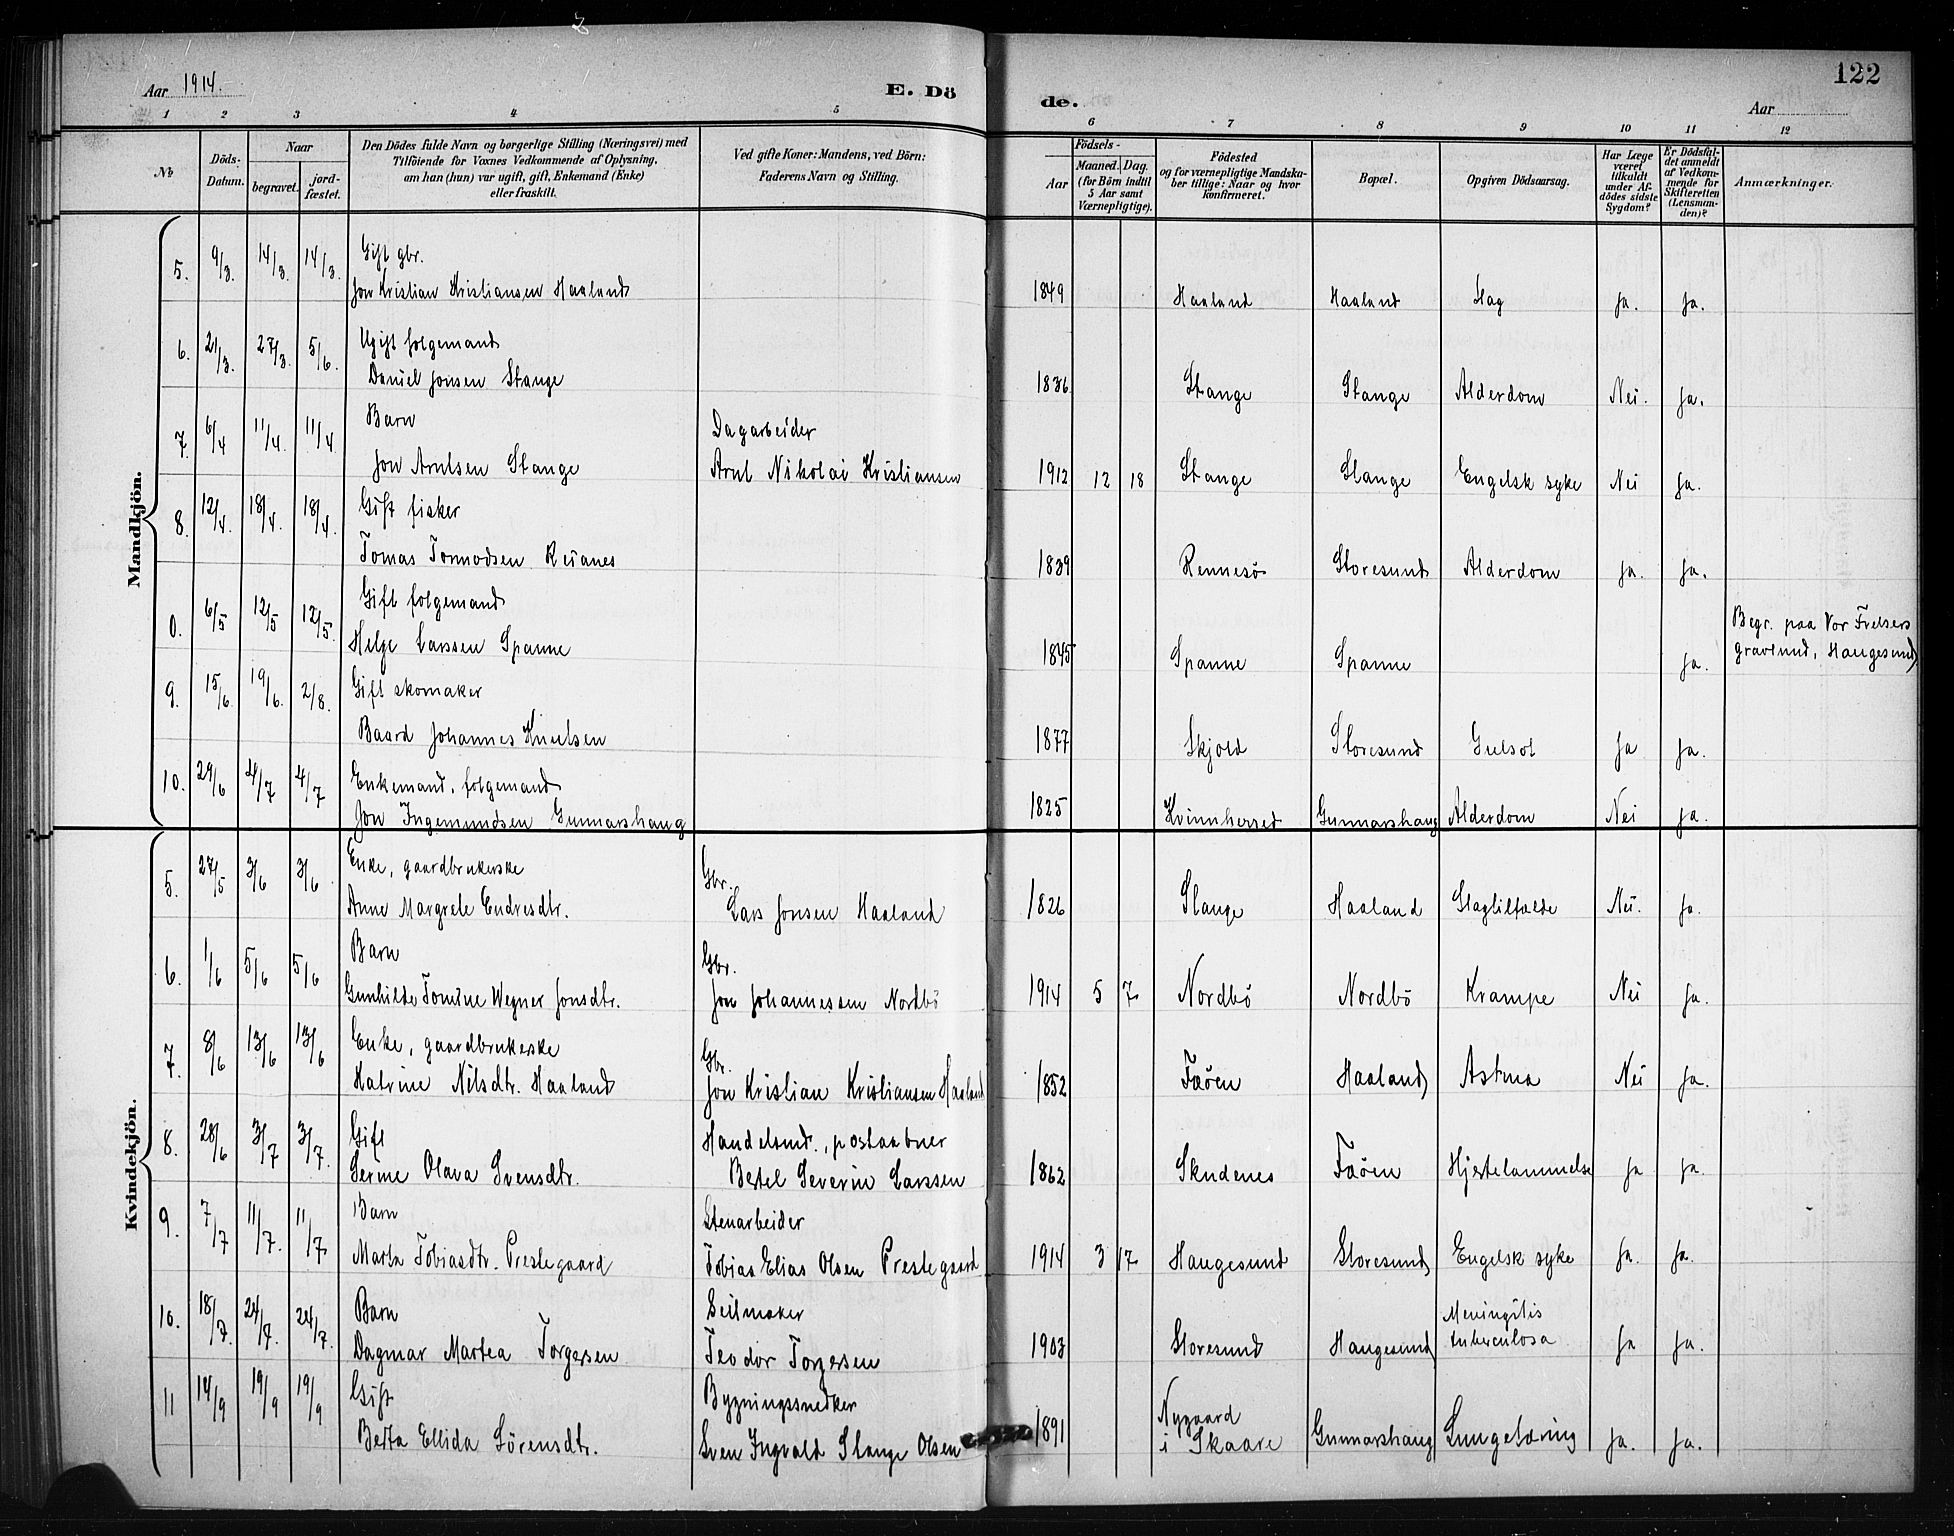 Aar 1914.
E. Dö
de.
Aar
122
1 2 3 4 5 6 7 8 9 10 11 12
No
Döds-
Datum.
Naar
begravet.
jord-
fæstet.
Den Dödes fulde Navn og borgerlige Stilling (Næringsvei) med
Tilföiende for Voxnes Vedkommende af Oplysning,
om han (hun) var ugift, gift, Enkemand (Enke)
eller fraskilt.
Ved gifte Koner: Mandens, ved Börn:
Faderens Navn og Stilling.
Födsels-
Aar
Maaned. Dag.
(for Börn indtil
5 Aar samt
Værnepligtige).
Födested
og for værnepligtige Mandska-
ber tillige: Naar og hvor
konfirmeret.
Bopæl.
Opgiven Dödsaarsag.
Har Læge
været
tilkaldt
under Af-
dödes sidste
Sygdom?
Er Dödsfal-
det anmeldt
af Vedkom-
mende for
Skifteretten
(Lensman-
den)?
Anmærkninger.
Mandkjön.
Gift gbr.
5. 9/3. 14/3. 14/3. Jon Kristian Kristiansen Haaland 1849 Haaland Haaland Slag Ja. Ja.
Ugift folgemand
6. 21/3. 27/3. 5/6. Daniel Jonsen Stange 1836 Stange Stange Alderdom Nei. Ja.
Barn Dagarbeider
7. 6/4 11/4. 11/4 Jon Arntsen Stange Arnt Nikolai Kristiansen 1912 12 18 Stange Stange Engelsk syke Nei Ja.
Gift fisker
8. 12/4. 18/4. 18/4. Tomas Tormodsen Reianes 1839 Rennesö Storesund Alderdom Ja. Ja.
Gift folgemand
0. 6/5 12/5 12/5. Helge Larssen Spanne 1845 Spanne Spanne Ja.
Begr. paa Vor Frelsers
gravlund, Haugesund
Gift skomaker
9. 15/6. 19/6. 2/8. Baard Johannes Knutsen 1877 Skjold Storesund Gulsot Ja Ja.
Enkemand, folgemand
10. 29/6 4/7 4/7 Jon Ingemundsen Gunnarshaug 1825 Kvinnherred Gunnarshaug Alderdom Nei Ja.
Kvindekjön.
Enke, gaardbrukerske Gbr.
5. 27/5 3/6 3/6 Anne Margrete Endresdtr. Lars Jonsen Haaland 1826 Stange Haaland Slagtilfælde Nei. Ja.
Barn Gbr.
6. 1/6 5/6 5/6 Gunhilde Tomine Wegner Jonsdtr. Jon Johannessen Nordbö 1914 5 7 Nordbö Nordbö Krampe Nei Ja.
Enke, gaardbrukerske Gbr.
7. 8/6 13/6 13/6 Katrine Nilsdtr. Haaland Jon Kristian Kristiansen Haaland 1852 Fæöen Haaland Astma Nei Ja.
Gift Handelsmd., postaabner
8. 28/6 3/7 3/7. Serine Olava Svensdtr. Bertel Severin Larssen 1862 Skudenes Fæöen Hjertelammelse Ja Ja.
Barn Stenarbeider
9. 7/7 11/7. 11/7 Marta Tobiasdtr. Prestegaard Tobias Elias Olsen Prestegaard 1914 3 17 Haugesund Storesund Engelsk syke Ja. Ja.
Barn Seilmaker Meningitis
10. 18/7. 24/7. 24/7. Dagmar Martea Torgersen Teodor Torgersen 1903 Storesund Haugesund tuberculosa Ja Ja.
Gift Bygningssnedker Nygaard
11 14/9 19/9 19/9 Berta Ellida Sörensdtr. Sven Ingvald Stange Olsen 1891 i Skaare Gunnarshaug Lungetæring Ja. Ja.